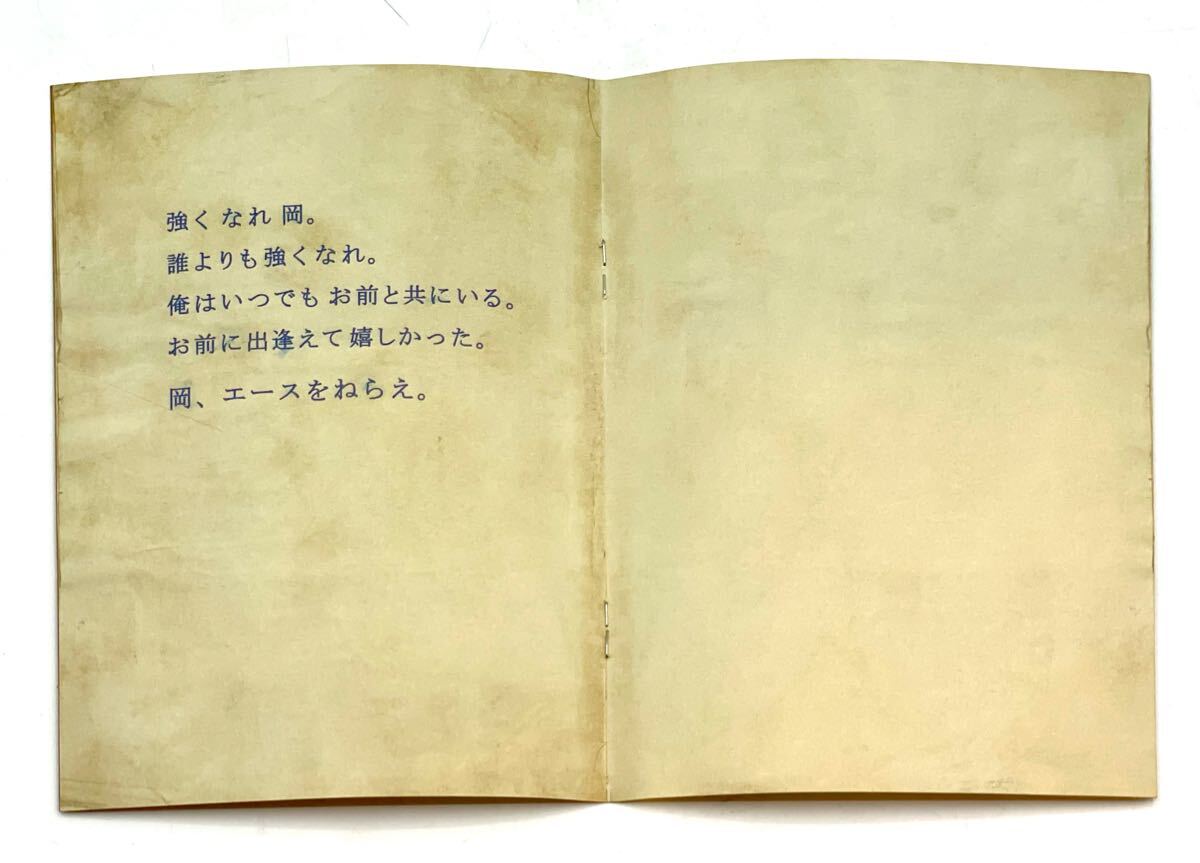 強くなれ 岡。
誰よりも強くなれ。
俺はいつでも お前と共にいる。
お前に出逢えて 嬉しかった。
岡、エースをねらえ。